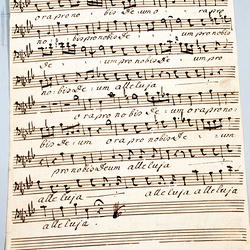 bis de um o ra pro
no: bis pro nobis de: um pro
de: um pro nobis de: um pro
no: bis de: um alleluja
o ra pro no bis de: un
de: um o ra pro nobis de: um
pro nobis de um alleluja
alleluja alleluja alleluja
alleluja.